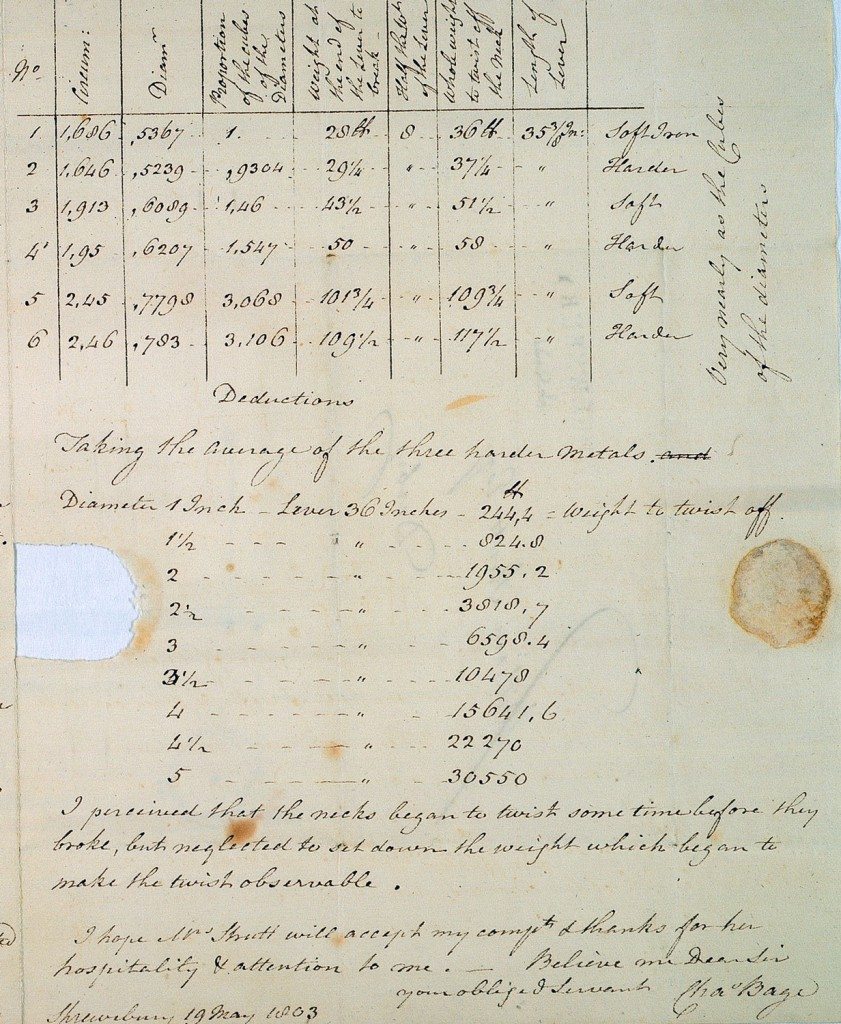 No. Circum: Diamr Proportion of the cubes of the Diameters Weight at the end of the Lever to break Half the Wt of the Lever Whole weight to twist off the neck Length of Lever
1 1,686 ,5367 1. 28 lb 8 36 lb 35 3/8 In: Soft Iron
2 1.646 ,5239 ,9304 29 1/4 " 37 1/4 " Harder
3 1,913 ,6089 1,46 43 1/2 " 51 1/2 " Soft
4 1,95 ,6207 1,547 50 " 58 " Harder
5 2,45 ,7798 3,068 101 3/4 " 109 3/4 " Soft
6 2,46 ,783 3,106 109 1/2 " 117 1/2 " Harder
Very nearly as the Cubes
of the diameters
Deductions
Taking the average of the three harder metals. and
Diameter 1 Inch - Lever 36 Inches - 244,4 lb = Weight to twist off.
1 1/2 " 824.8
2 " 1955.2
2 1/2 " 3818,7
3 " 6598.4
3 1/2 " 10478
4 " 15641,6
4 1/2 " 22270
5 " 30550
I perceived that the necks began to twist some time before they
broke, but neglected to set down the weight which began to
make the twist observable.
I hope Mrs Strutt will accept my compts & thanks for her
hospitality & attention to me. — Believe me Dear Sir
your obliged Servant Chas Bage
Shrewsbury 19 May 1803